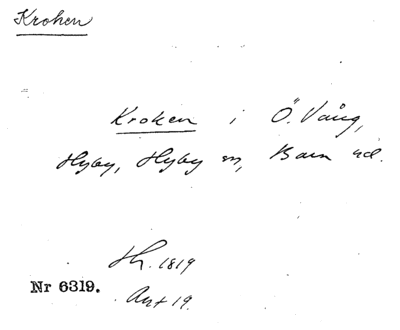 Kroken
Kroken i Ö. Vång,
Hyby, Hyby sn, Bara hd.
Sk. 1819
Nr 6319.
Ant 19.